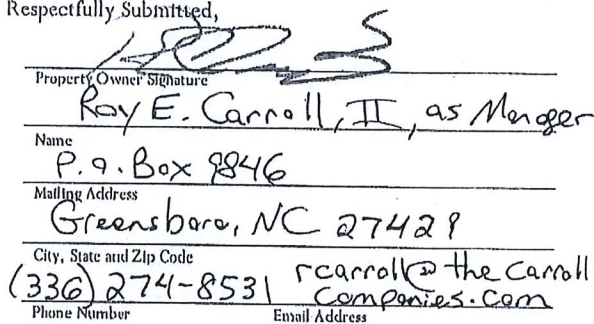 Respectfully Submitted,
Property Owner Signature
Roy E. Carroll, II, as Manager
Name
P.O. Box 9846
Mailing Address
Greensboro, NC 27429
City, State and Zip Code
(336) 274-8531 rcarroll@thecarroll
companies.com
Phone Number Email Address